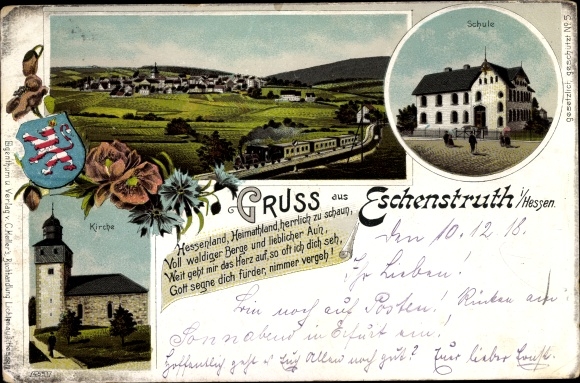 Schule
gesetzlich geschützt No 5.
Kirche
GRUSS aus Eschenstruth i/Hessen.
Hessenland, Heimathland, herrlich zu schaun,
Voll waldiger Berge und lieblicher Aun,
Weit geht mir das Herz auf, so oft ich dich seh,
Gott segne dich fürder, nimmer vergeh!
Eigenthum u Verlag v. C. Keller's Kunsthandlung
den 10. 12. 18.
Ihr Lieben!
Bin noch auf Posten! Rücken am
Sonnabend in Erfurt ein!
Hoffentlich geht es Euch Allen noch gut? Euer lieber